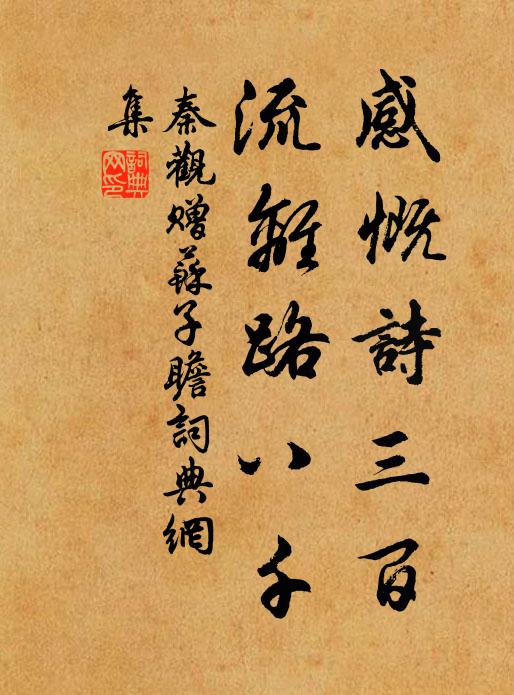 感慨詩三百
流離路八千
秦觀贈蘇子瞻詞典網
集
詞典網印